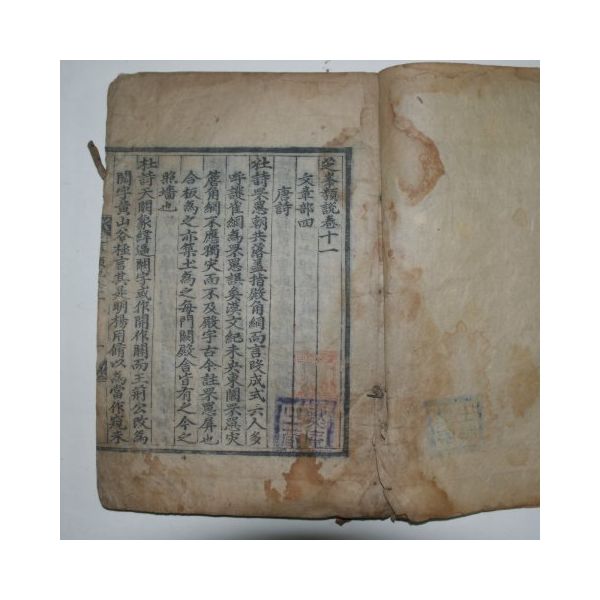 芝峯類說卷十一
文章部四
唐詩
杜詩罘罳朝共落盖指殿角網而言段成式六人多
呼護雀網為罘罳誤矣漢文紀未央東闕罘罳灾
簷角網不應獨灾而不及殿宇古今註罘罳屏也
合板為之亦築土為之每門闕殿舍皆有之今之
照墻也
杜詩天闕象緯逼闕字或作開作關而王荊公改為
閱字黃山谷極言其是明楊用脩以為當作窺未